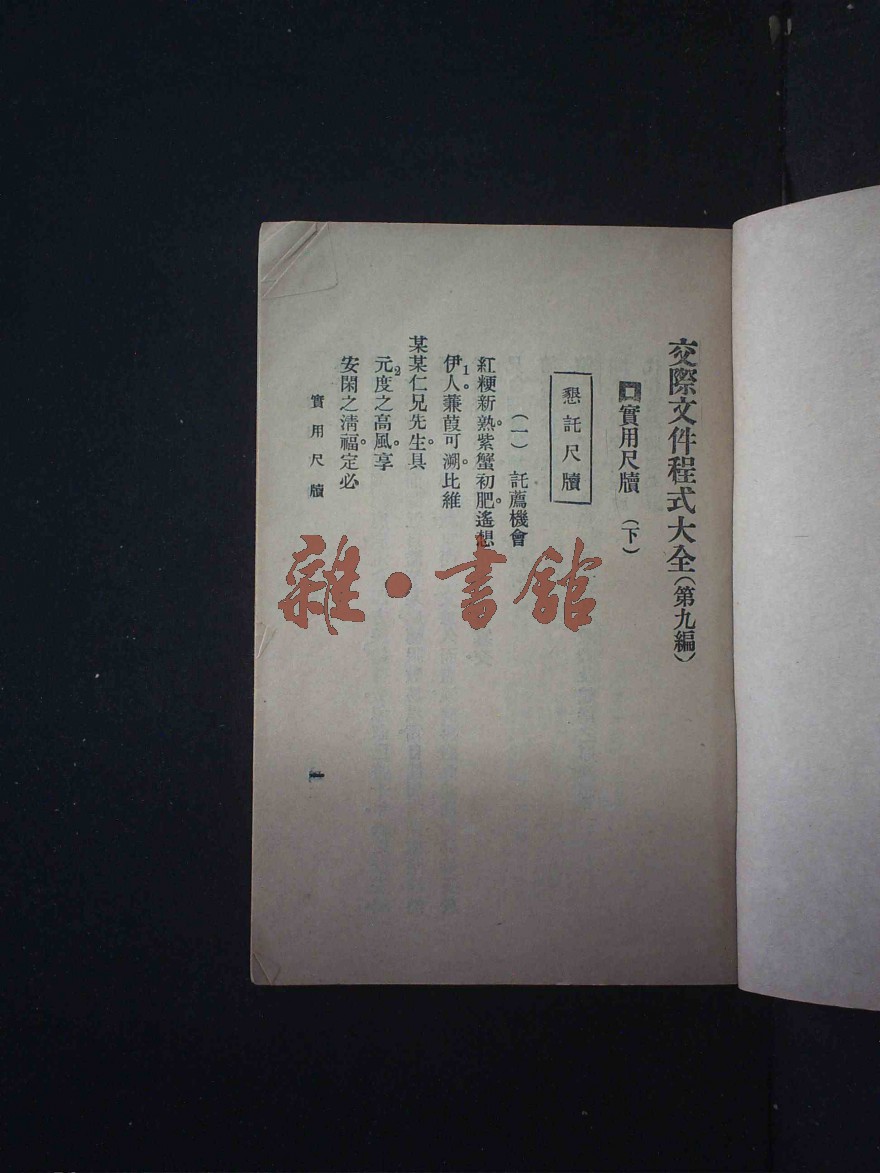 交際文件程式大全(第九編)
實用尺牘(下)
懇託尺牘
(一) 託薦機會
紅粳新熟。紫蟹初肥。遙想
伊人1。蒹葭可溯。比維
某某仁兄先生。具
元度2之高風。享
安閑之清福。定必
實用尺牘
一
雜·書館